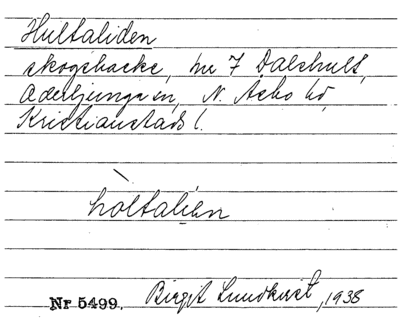 Hultaliden
skogsbacke, nr 7 Dalshult,
Örkeljunga sn, N. Åsbo hd
Kristianstads l.
hòltalíen
Nr 5499. Birgit Lundkvist, 1938